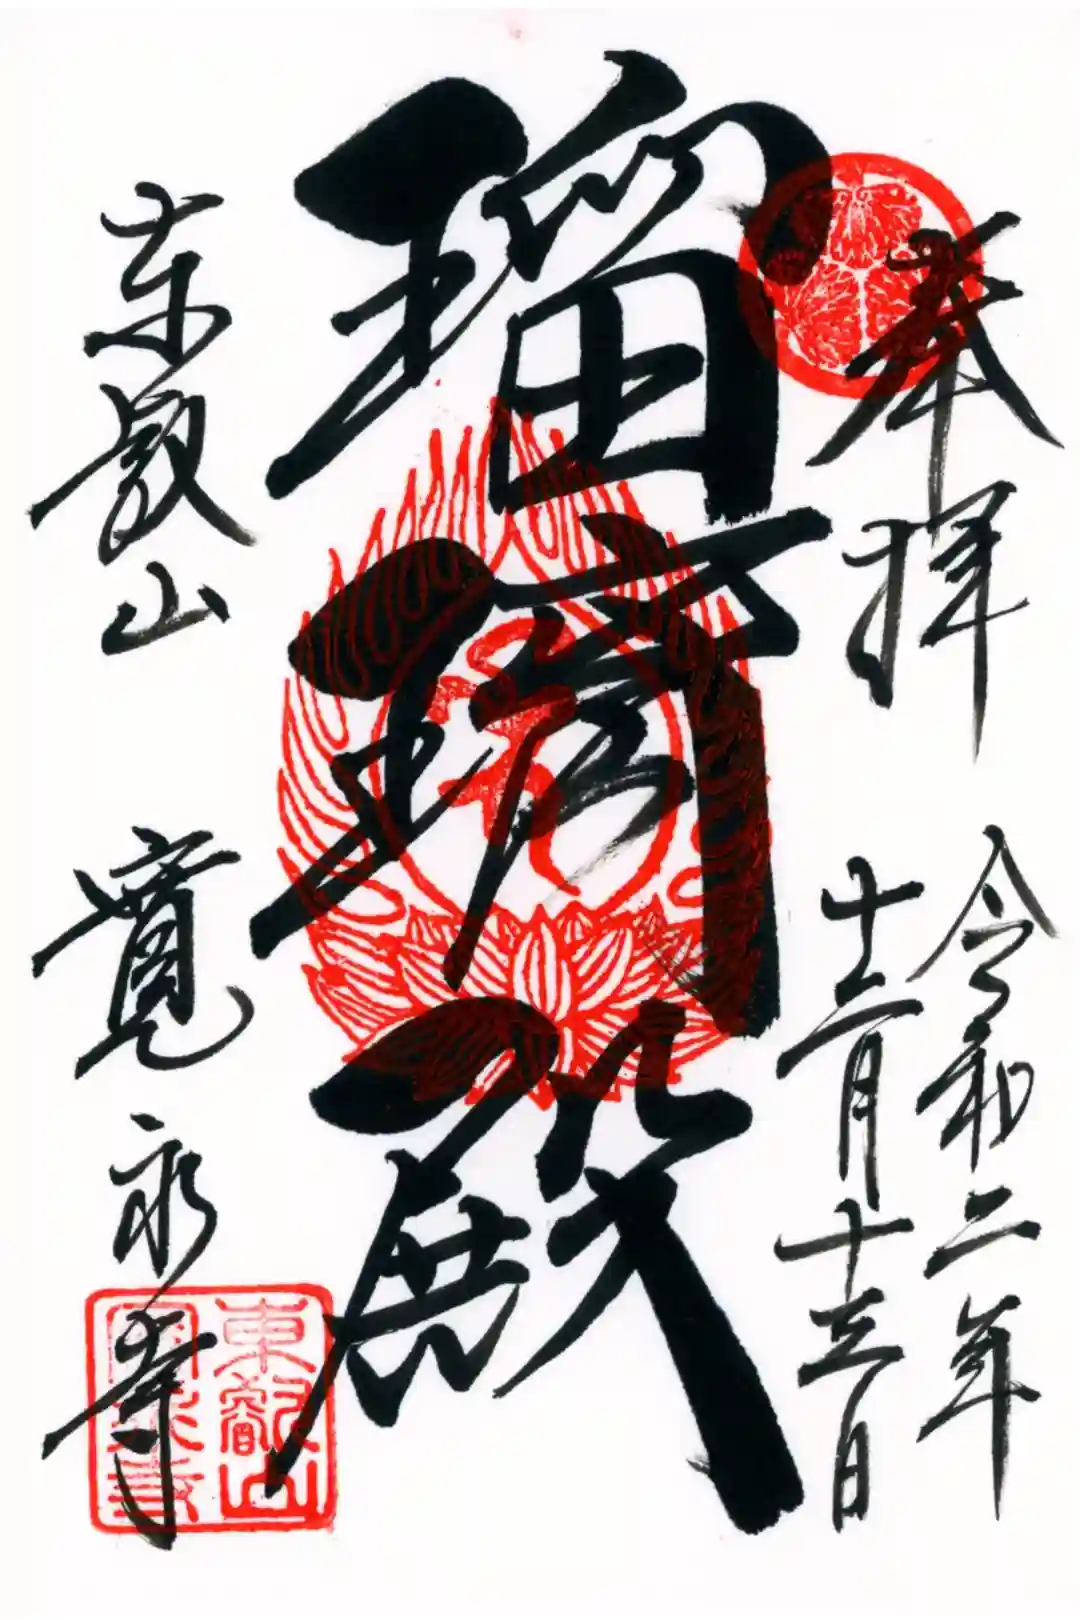 奉拝
令和二年
十二月十三日
瑠璃殿
東叡山 寛永寺
東叡山